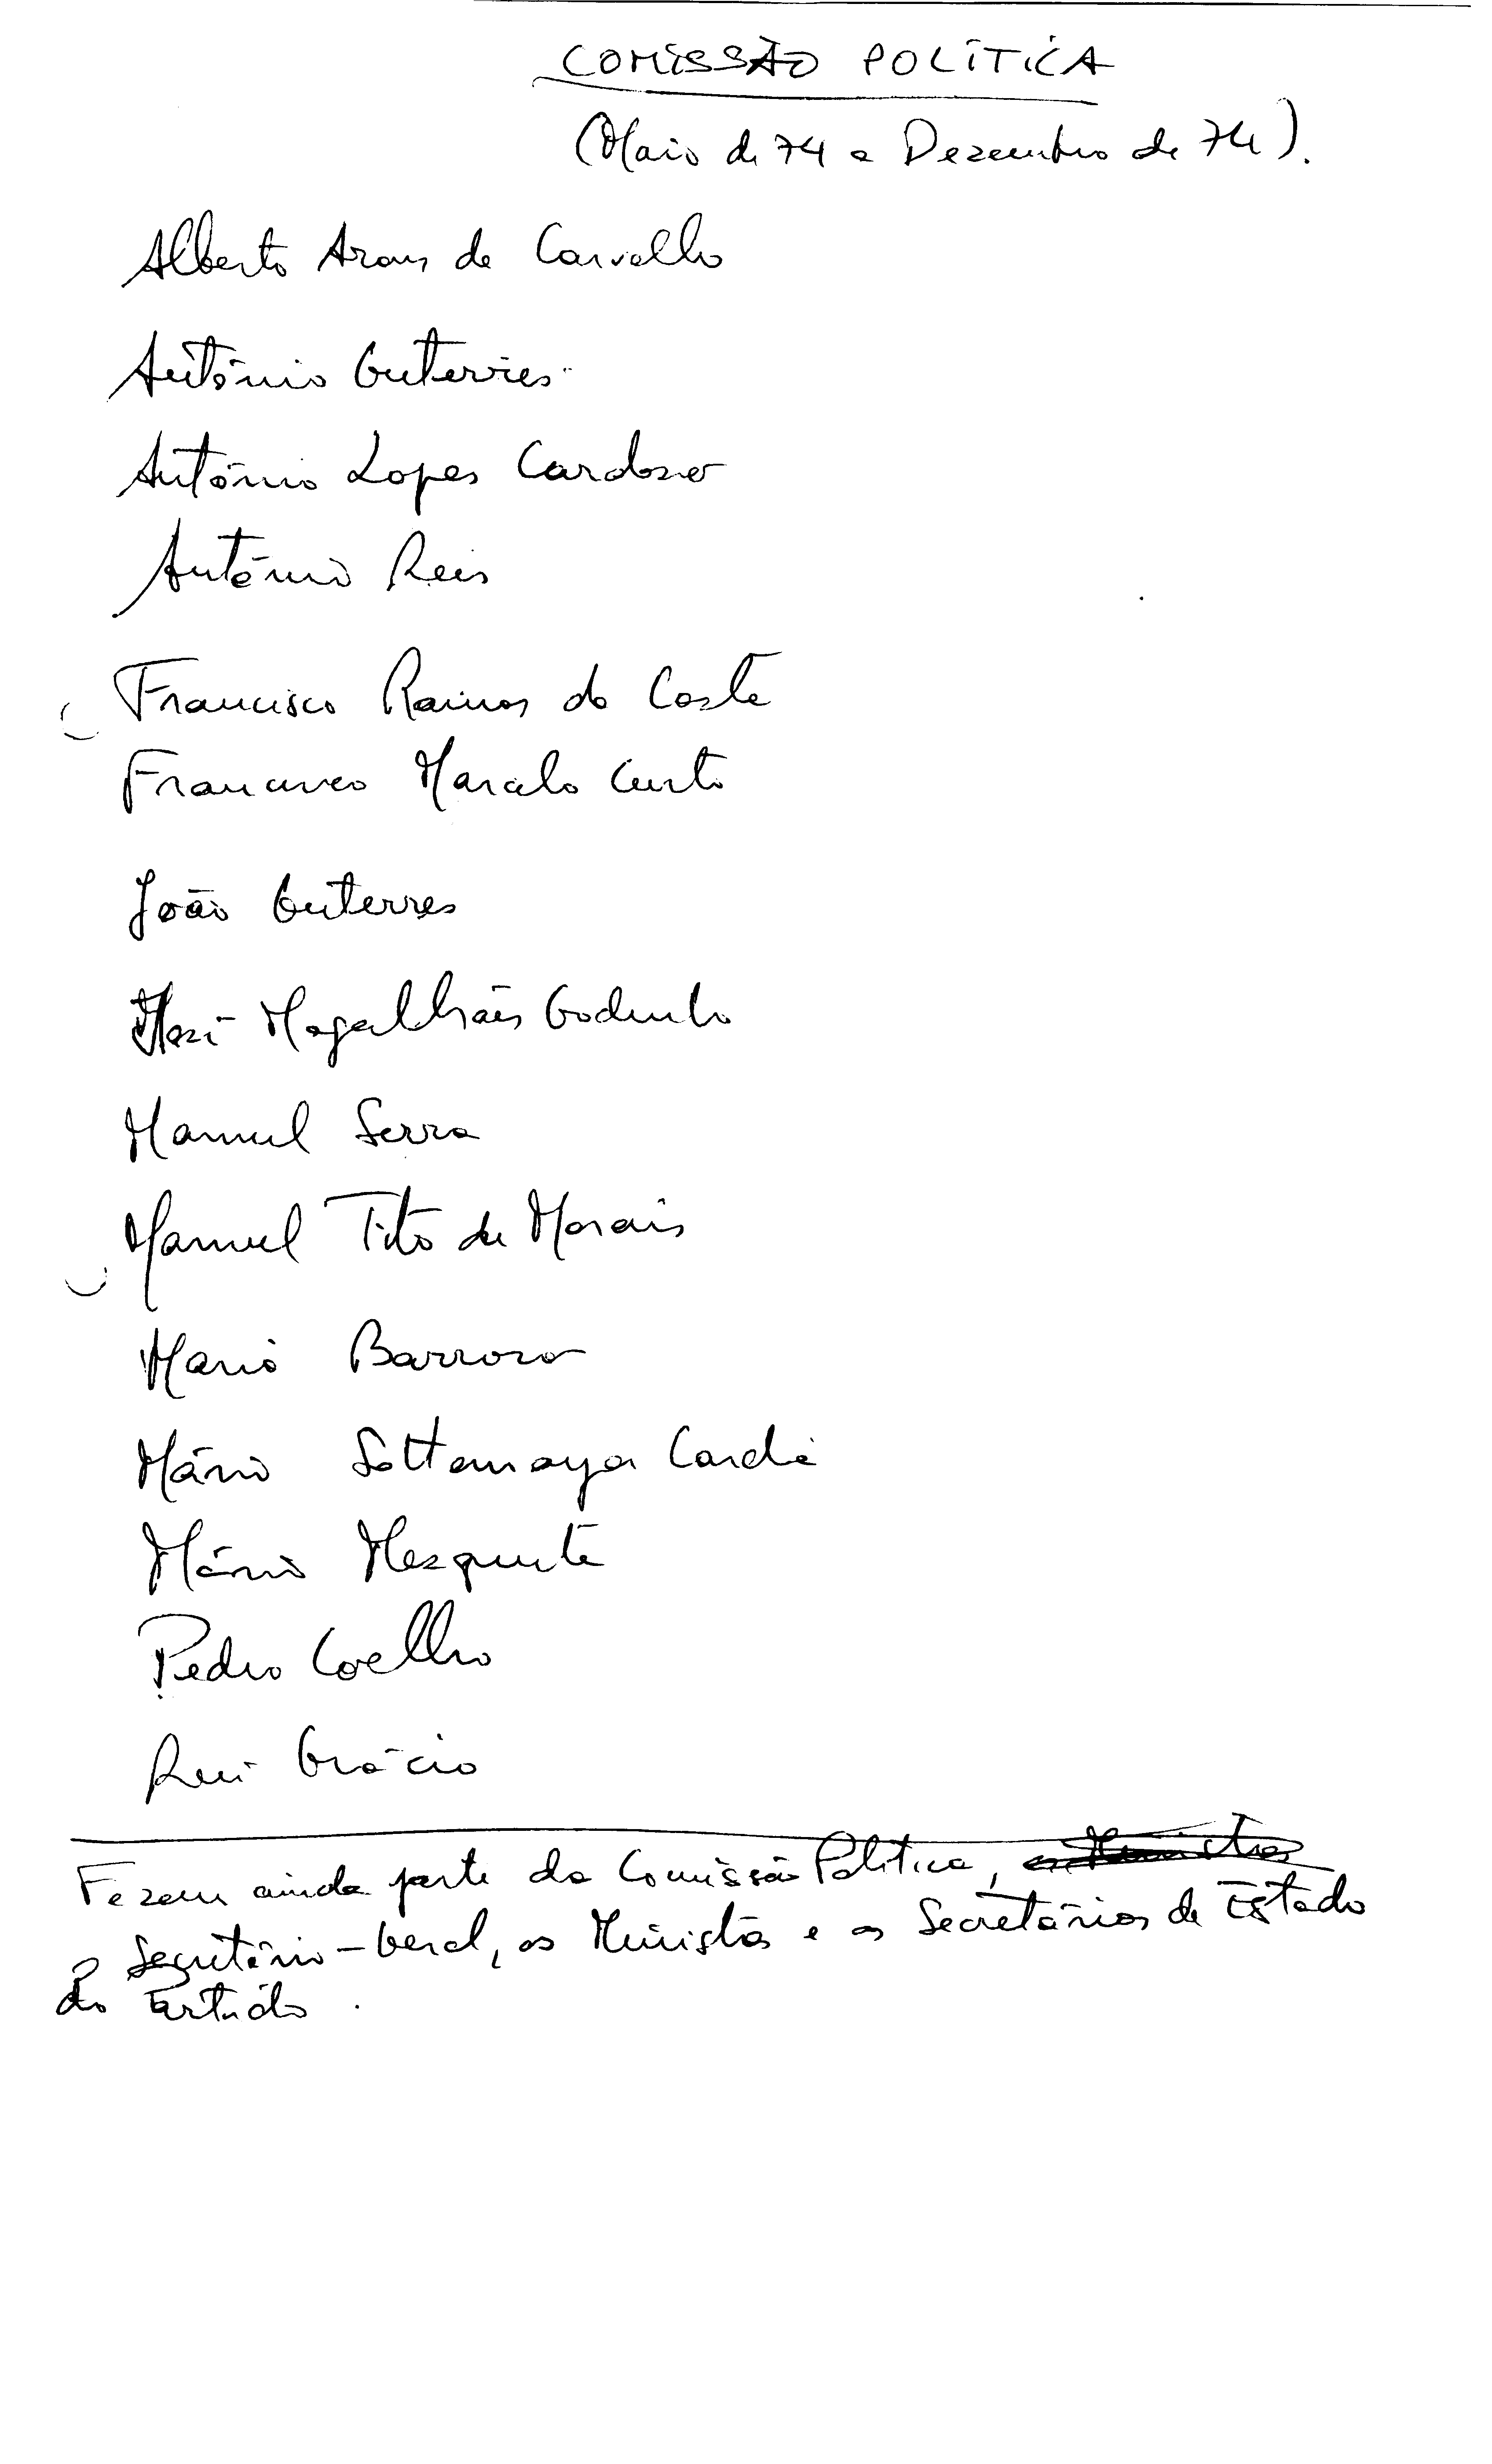 COMISSÃO POLÍTICA
(Maio de 74 a Dezembro de 74).
Alberto Arons de Carvalho
António Guterres
António Lopes Cardoso
António Reis
Francisco Ramos da Costa
Francisco Marcelo Curto
João Guterres
José Magalhães Godinho
Manuel Serra
Manuel Tito de Morais
Mario Barroso
Mário Sottomayor Cardia
Mário Mesquita
Pedro Coelho
Rui Grácio
Fazem ainda parte da Comissão Política, os Ministros
o Secretário-Geral, os Ministros e os Secretários de Estado
do Partido.